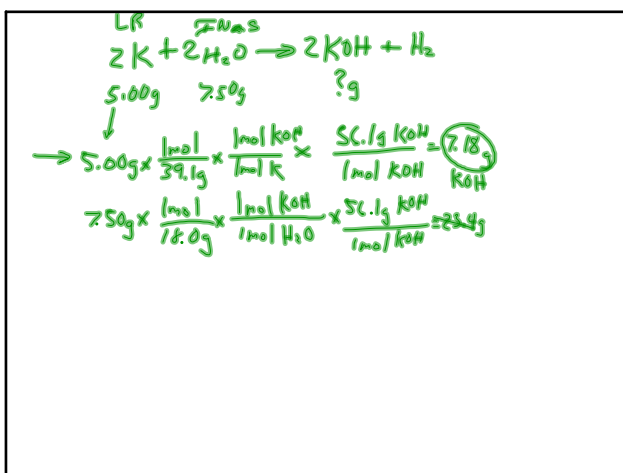 LR XNaS
2K + 2H₂O → 2KOH + H₂
5.00g 7.50g ?g
→ 5.00g x 1mol/39.1g x 1mol KOH/1mol K x 56.1g KOH/1mol KOH = 7.18g KOH
7.50g x 1mol/18.0g x 1mol KOH/1mol H₂O x 56.1g KOH/1mol KOH = 23.4g